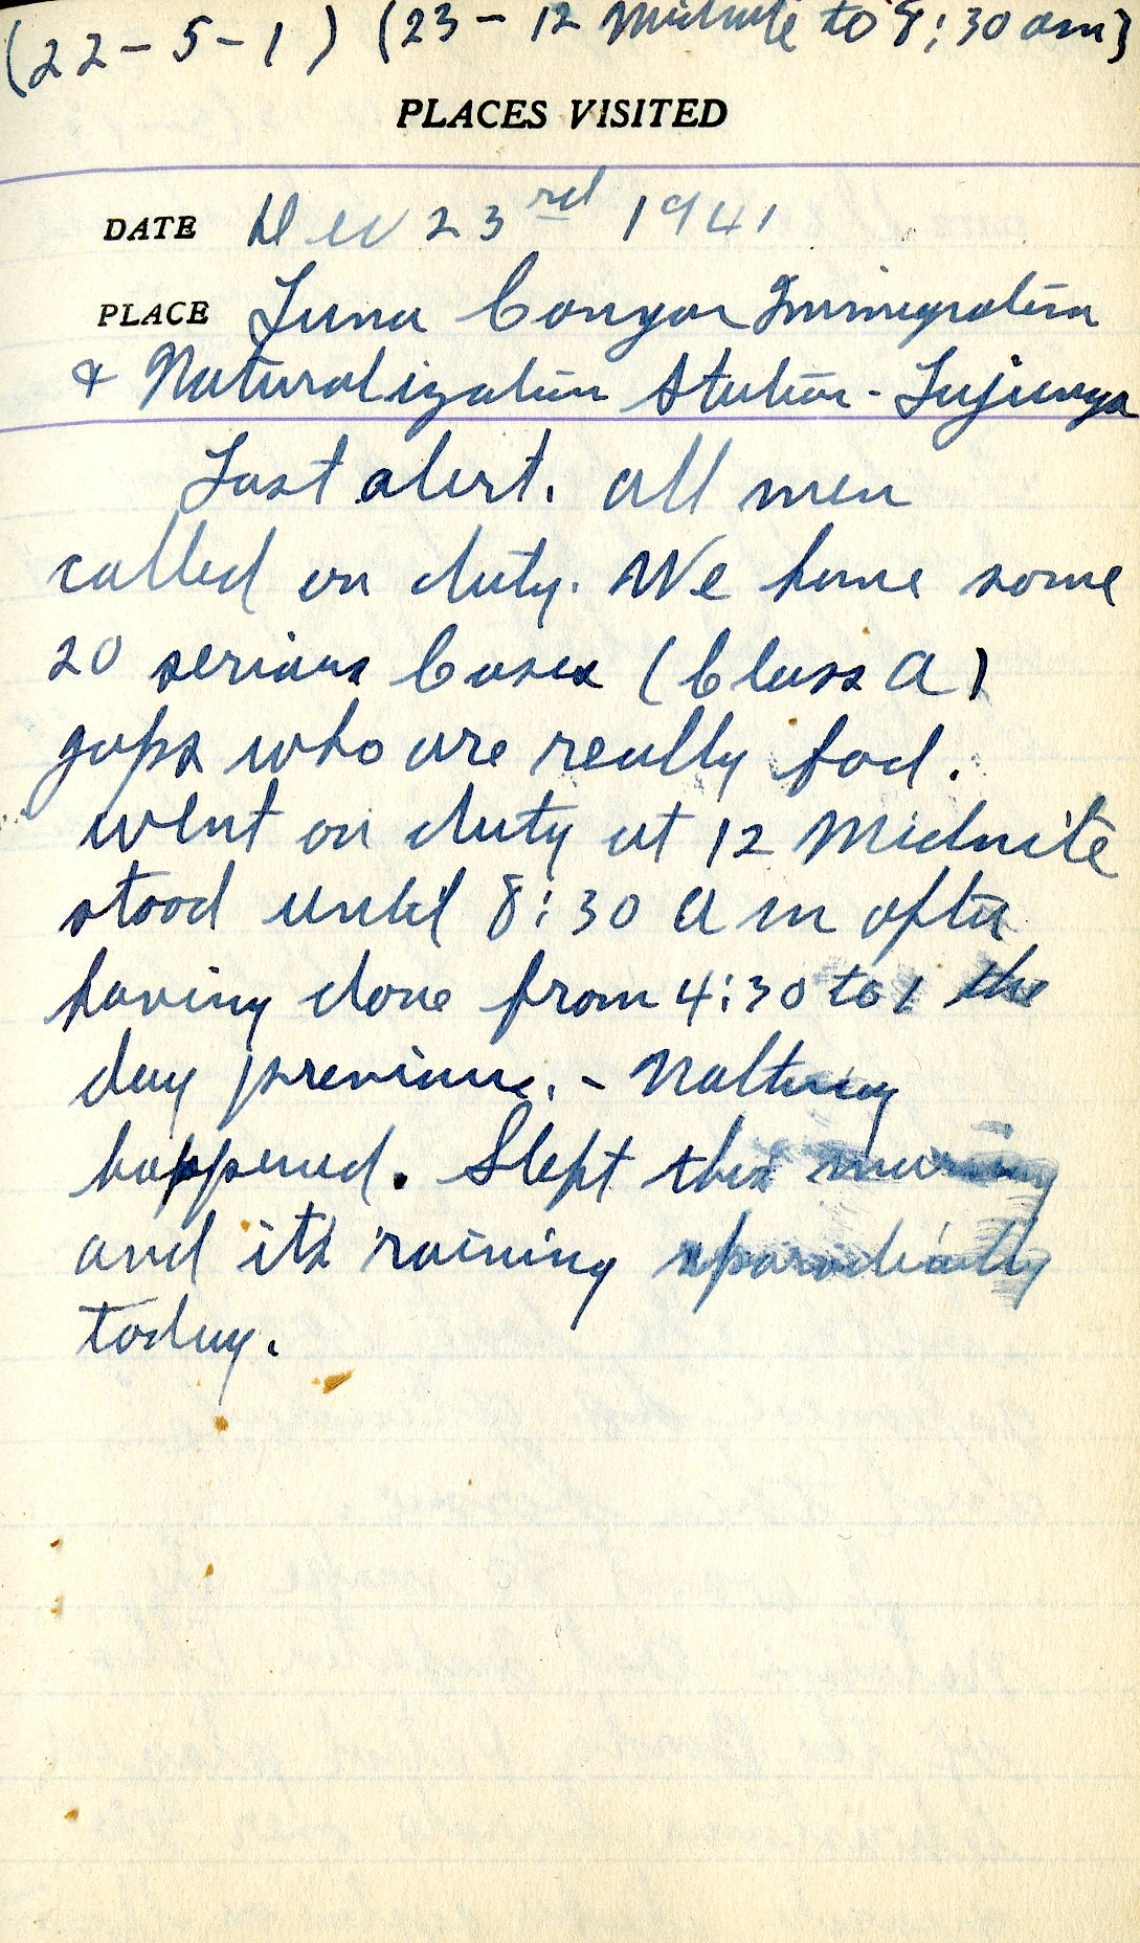 (22-5-1) (23 - 12 Midnite to 8:30 am)
PLACES VISITED
DATE Dec 23rd 1941
PLACE Tuna Canyon Immigration
& Naturalization Station - Tujunga
Last alert. All men
called on duty. We have some
20 serious Cases (Class A)
japs who are really bad.
went on duty at 12 Midnite
stood until 8:30 A m after
having done from 4:30 to 1 the
day previous. - Nothing
happened. Slept this morning
and its raining sporadically
today.